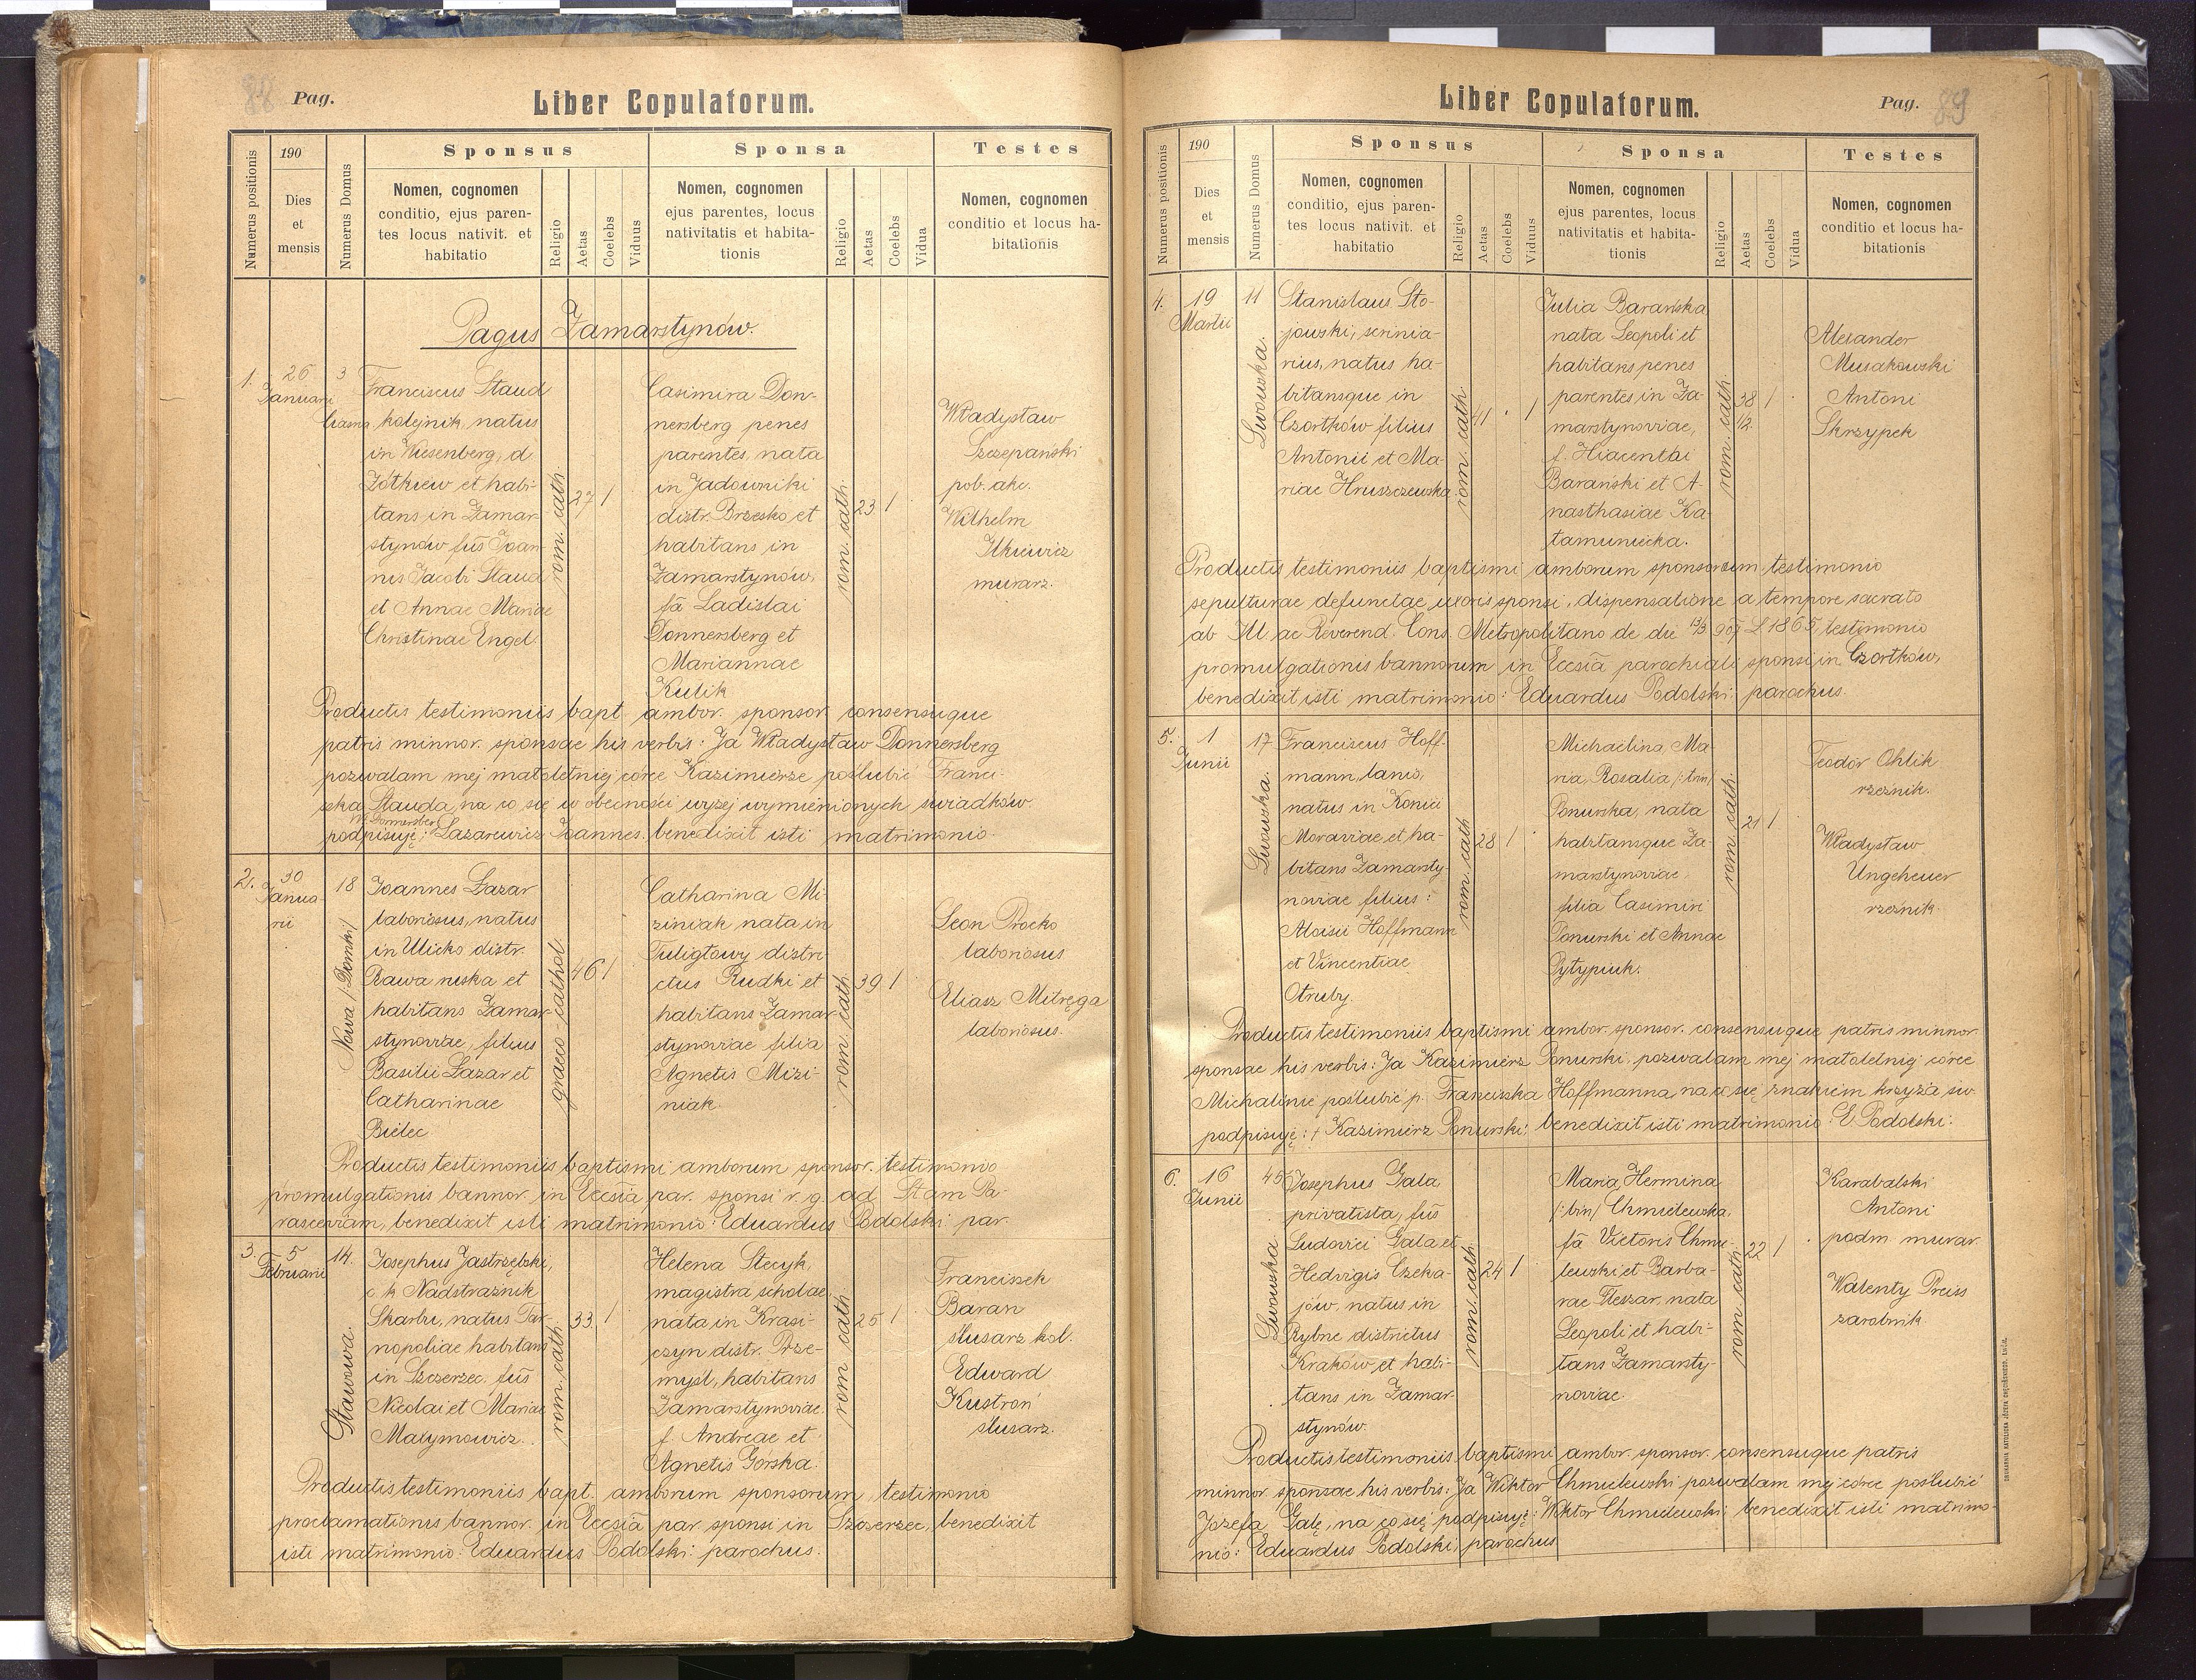 88 Pag.
Liber Copulatorum.
Numerus positionis
190
Dies
et
mensis
Numerus Domus
Sponsus
Nomen, cognomen
conditio, ejus paren-
tes locus nativit. et
habitatio
Religio
Aetas
Coelebs
Viduus
Sponsa
Nomen, cognomen
ejus parentes, locus
nativitatis et habita-
tionis
Religio
Aetas
Coelebs
Vidua
Testes
Nomen, cognomen
conditio et locus ha-
bitationis
Pagus Zamarstynów.
1.
26
Januarii
3
Franciscus Staud
kolejnik, natus
in Wiesenberg, d.
Żółkiew et habi-
tans in Zamar-
stynów fũs Joan-
nis Jacobi Staud
et Annae Mariae
Christinae Engel.
rom. cath.
27
1
Casimira Don-
nersberg penes
parentes, nata
in Jadowniki
distr. Brzesko et
habitans in
Zamarstynów,
fã Ladislai
Donnersberg et
Mariannae
Kulik
rom. cath.
23
1
Władysław
Szczepański
pob. akc.
Wilhelm
Ilkiewicz
murarz.
Productis testimoniis bapt. ambor. sponsor. consensuque
patris minnor. sponsae his verbis: Ja Władysław Donnersberg
pozwalam mej małoletniej córce Kazimierze poślubić Franci-
szka Stauda, na co się w obecności wyżej wymienionych świadków
Wł. Donnersberg
podpisuję: Lazarewicz Joannes. benedixit isti matrimonio.
2.
30
Janua-
rii
18
Nowa /Domki/
Joannes Lazar
laboriosus, natus
in Ulicko distr.
Rawa ruska et
habitans Zamar-
stynoviae, filius
Basilii Lazar et
Catharinae
Bielec.
graeco-cathol
46
1
Catharina Mi-
ziniak nata in
Tuligłowy distri-
ctus Rudki et
habitans Zamar-
stynoviae filia
Agnetis Mizi-
niak.
rom. cath.
39
1
Leon Procko
laboriosus
Eliasz Mitręga
laboriosus.
Productis testimoniis baptismi amborum sponsor. testimonio
promulgationis bannor. in Eccsia par. sponsi r. g. ad Stam Pa-
rasceviam, benedixit isti matrimonio: Eduardus Podolski par.
3.
5
Februarii
14.
Stawowa.
Josephus Jastrzębski,
c. k. Nadstrażnik
Skarbu, natus Tar-
nopoliae habitans
in Szczerzec, fũs
Nicolai et Mariae
Maxymowicz.
rom. cath.
33
1
Helena Stecyk,
magistra scholae
nata in Krasi-
czyn distr. Prze-
myśl, habitans
Zamarstynoviae.
f. Andreae et
Agnetis Górska.
rom cath
25
1
Franciszek
Baran
ślusarz kol.
Edward
Kustroń
ślusarz.
Productis testimoniis bapt. amborum sponsorum, testimonio
proclamationis bannor. in Eccsia par. sponsi in Szczerzec, benedixit
isti matrimonio: Eduardus Podolski: parochus.
Liber Copulatorum.
Pag. 89
Numerus positionis
190
Dies
et
mensis
Numerus Domus
Sponsus
Nomen, cognomen
conditio, ejus paren-
tes locus nativit. et
habitatio
Religio
Aetas
Coelebs
Viduus
Sponsa
Nomen, cognomen
ejus parentes, locus
nativitatis et habita-
tionis
Religio
Aetas
Coelebs
Vidua
Testes
Nomen, cognomen
conditio et locus ha-
bitationis
4.
19
Martii
11
Lwowska.
Stanislaus Sto-
jowski, scrinia-
rius, natus ha-
bitansque in
Czortków filius
Antonii et Ma-
riae Hruszczewska.
rom. cath.
41
1
Julia Barańska
nata Leopoli et
habitans penes
parentes in Za-
marstynoviae,
f. Hiacenthi
Barański et A-
nasthasiae Ka-
tamuniecka.
rom. cath.
38
1/2
1
Alexander
Musakowski
Antoni
Skrzypek
Productis testimoniis baptismi amborum sponsorum testimonio
sepulturae defunctae uxoris sponsi, dispensatione a tempore sacrato
ab Ill. ac Reverend. Cons. Metropolitano de die 13/3 907 L 1865, testimonio
promulgationis bannorum in Eccsia parochiali sponsi in Czortków,
benedixit isti matrimonio: Eduardus Podolski: parochus.
5.
1
Junii
17
Lwowska.
Franciscus Hoff-
mann, lanio,
natus in Konici
Moraviae et ha-
bitans Zamarsty-
noviae filius:
Aloisii Hoffmann
et Vincentiae
Otruby.
rom. cath
28
1
Michaelina, Ma-
ria, Rosalia /:trin/
Ponurska, nata
habitansque Za-
marstynoviae,
filia Casimiri
Ponurski et Annae
Pytypiuk.
rom. cath.
21
1
Teodor Ohlik
rzeźnik.
Władysław
Ungeheuer
rzeźnik.
Productis testimoniis baptismi ambor. sponsor. consensuque patris minnor.
sponsae his verbis: Ja Kazimierz Ponurski, pozwalam mej małoletniej córce
Michalinie poślubić p. Franciszka Hoffmanna na co się znakiem krzyża św.
podpisuję: † Kazimierz Ponurski: benedixit isti matrimonio: E. Podolski.
6.
16
Junii
45
Lwowska
Josephus Gala
privatista, fũs
Ludovici Gala et
Hedvigis Czeka-
jów, natus in
Rybne districtus
Kraków et habi-
tans in Zamar-
stynów.
rom. cath.
24
1
Maria, Hermina
/:bin/ Chmielewska,
fã Victoris Chmie-
lewski et Barba-
rae Fleszar, nata
Leopoli et habi-
tans Zamarsty-
noviae.
rom. cath.
22
1
Karabalski
Antoni
podm. murar.
Walenty Preiss
zarobnik
Productis testimoniis baptismi ambor. sponsor. consensuque patris
minnor sponsae his verbis: Ja Wiktor Chmielewski pozwalam mej córce poślubić
Józefa Galę, na co się podpisuję: Wiktor Chmielewski, benedixit isti matrimo-
nio: Eduardus Podolski, parochus